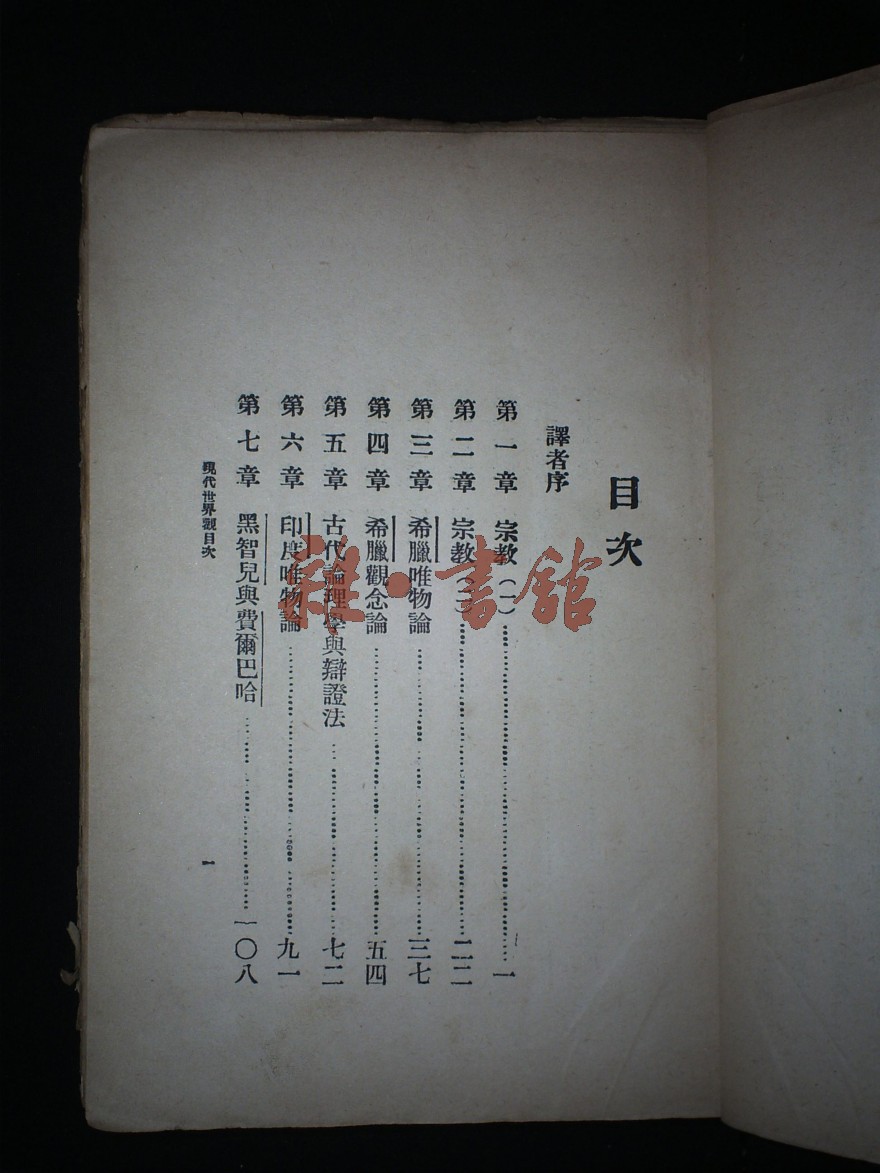 目次
譯者序
第一章 宗教(一)……一
第二章 宗教(二)……二二
第三章 希臘唯物論……三七
第四章 希臘觀念論……五四
第五章 古代論理學與辯證法……七二
第六章 印度唯物論……九一
第七章 黑智兒與費爾巴哈……一〇八
現代世界觀目次
一
雜·書館